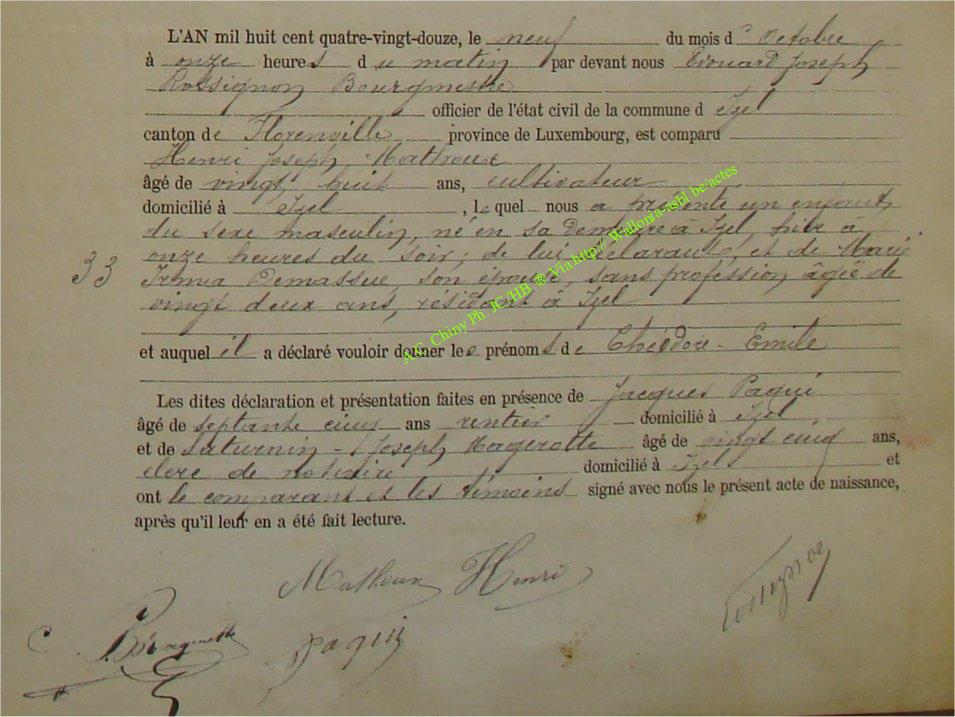 L'AN mil huit cent quatre-vingt-douze, le neuf du mois d'Octobre
à onze heures du matin par devant nous Edouard Joseph
Rossignon Bourgmestre
officier de l'état civil de la commune d'Izel
canton de Florenville province de Luxembourg, est comparu
Henri Joseph Mathoux
âgé de vingt huit ans, cultivateur
domicilié à Izel, lequel nous a présenté un enfant
du sexe masculin, né en sa demeure à Izel, hier à
onze heures du soir, de lui déclarant, et de Marie
33 Irma Demassue, son épouse, sans profession, âgée de
vingt deux ans, résidant à Izel
et auquel il a déclaré vouloir donner les prénoms de Théodore - Emile
Les dites déclaration et présentation faites en présence de Jacques Paqui
âgé de septante cinq ans rentier domicilié à Izel
et de Saturnin - Joseph Magerotte âgé de vingt cinq ans,
clerc de notaire domicilié à Izel et
ont le comparant et les témoins signé avec nous le présent acte de naissance,
après qu'il leur en a été fait lecture.
Mathoux Henri
Paquis
A.G. Chiny Ph JC/HB ® Via http:// Wallonia-asbl.be/actes